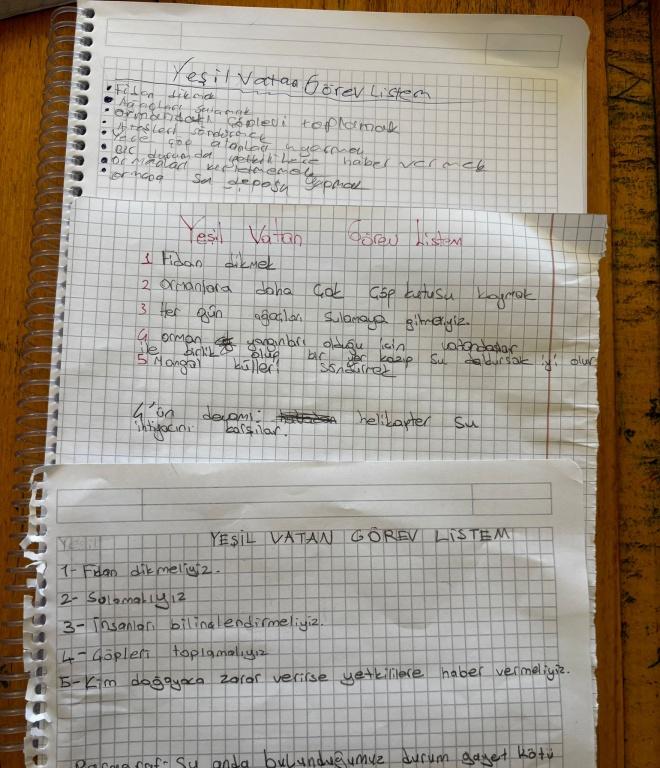 Yeşil Vatan Görev Listem
• Fidan dikmek
• Ağaçları sulamak
• Ormandaki çöpleri toplamak
• Ateşleri söndürmek
• Yere çöp atanları uyarmak
• Bir durumda yetkililere haber vermek
• Ormanları kirletmemek
• Ormana su deposu yapmak
Yeşil Vatan Görev Listem
1 Fidan dikmek
2 Ormanlara daha çok çöp kutusu koymak
3 Her gün ağaçları sulamaya gitmeliyiz.
4 orman yangınları olduğu için vatandaşlar
ile birlik olup bir yer kazıp su doldursak iyi olur
5 Mangal külleri söndürmek
4'ün devamı: helikopter su
ihtiyacını karşılar.
Yeşil
YEŞİL VATAN GÖREV LİSTEM
1- Fidan dikmeliyiz.
2- Sulamalıyız
3- İnsanları bilinçlendirmeliyiz.
4- Çöpleri toplamalıyız
5- Kim doğayaca zarar verirse yetkililere haber vermeliyiz.
Paragraf- Şu anda bulunduğumuz durum gayet kötü